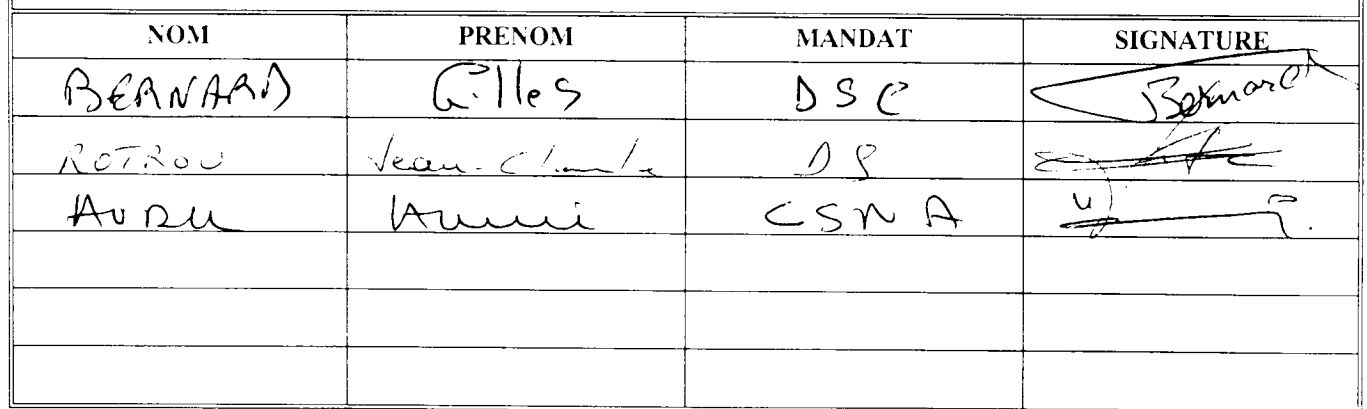 NOM PRENOM MANDAT SIGNATURE
BERNARD Gilles DSC Bernard
ROTROU Jean-Claude DS
CSNA